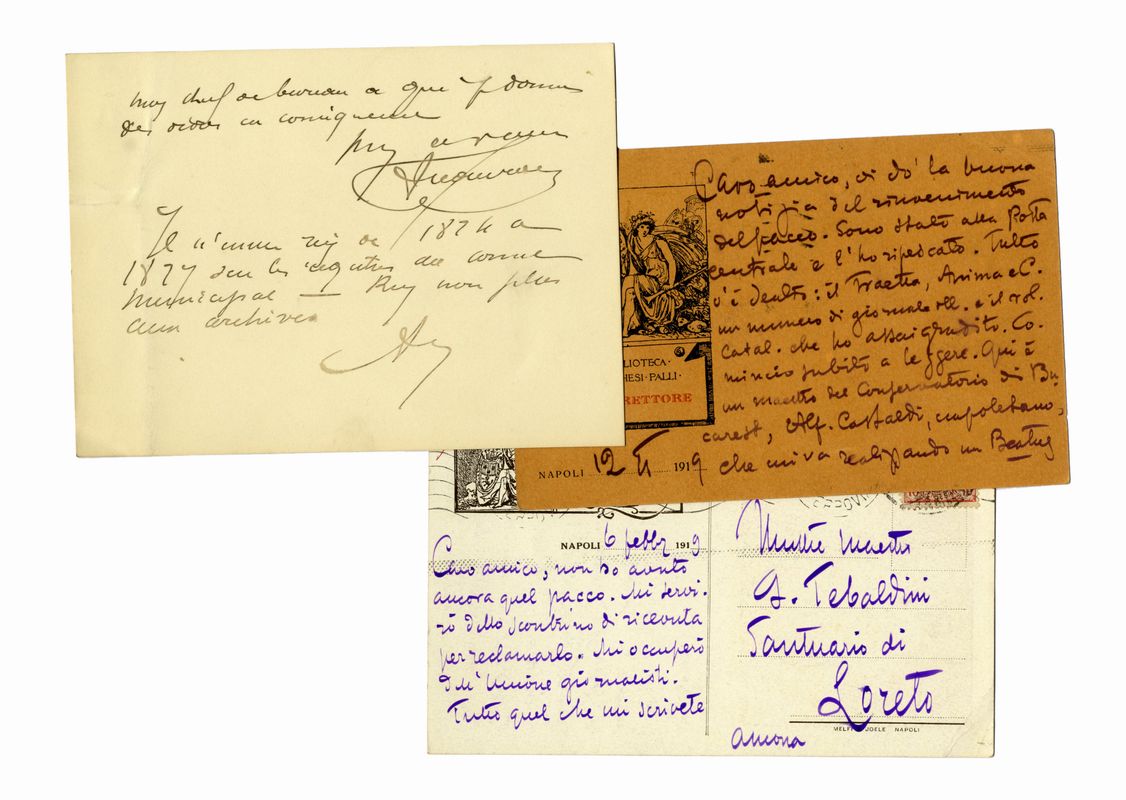 mon chef de bureau a qui je donne
des ordres en conséquence
Je
1824 a
1827 sur les registres du
municipal —
aux archives
Caro amico, vi do' la buona
notizia del rinvenimento
del pacco. Sono stato alla Posta
centrale e l'ho ripescato. Tutto
v'è dentro: il Traetta, Anima e C.
un numero di giornale e il vol.
Catal. che ho assai gradito. Co-
mincio subito a leggere. Qui è
un maestro del Conservatorio di Bu-
carest, Alf. Castaldi, napoletano,
che mi va realizzando un Beatus
LIOTECA·
HESI·PALLI·
RETTORE
NAPOLI 12 II 1919
NAPOLI 6 febbr 1919
Caro amico, non ho avuto
ancora quel pacco. Mi servi-
rò dello scontrino di ricevuta
per reclamarlo. Mi occuperò
dell'Unione giornalisti.
Tutto quel che mi scrivete
Illustre maestro
G. Tebaldini
Santuario di
Loreto
Ancona
MELFI JOELE NAPOLI